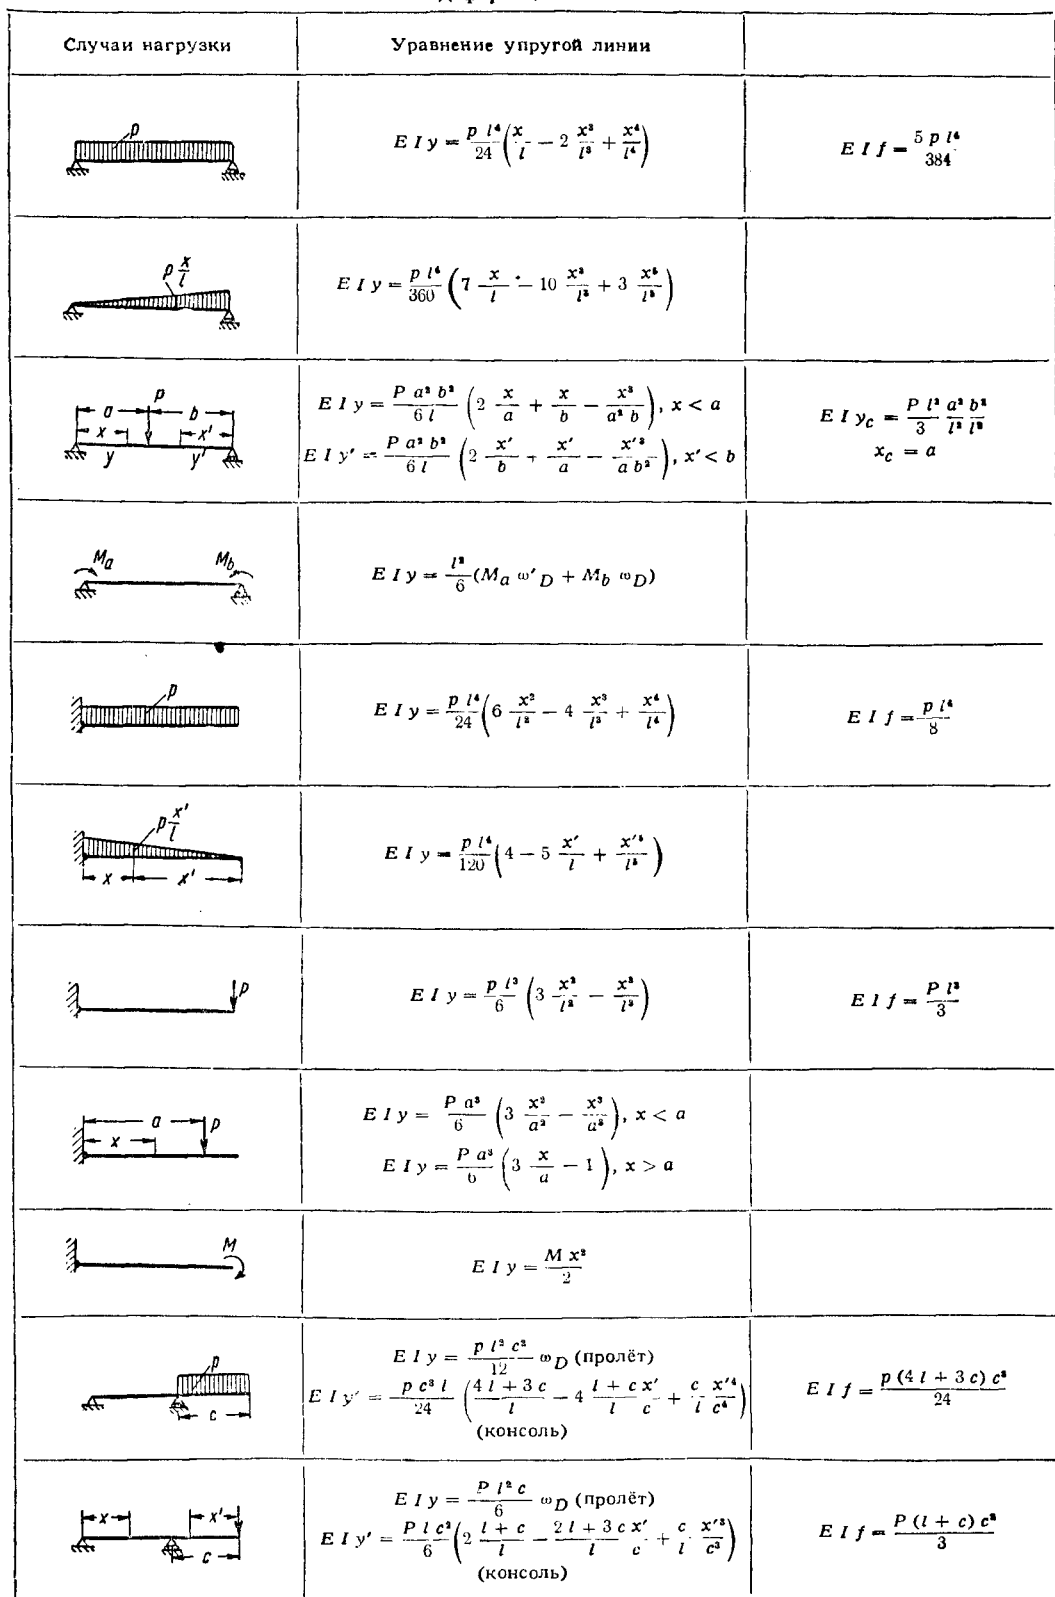 Случаи нагрузки
Уравнение упругой линии
p
E I y = p l⁴/24 (x/l − 2 x³/l³ + x⁴/l⁴)
E I f = 5 p l⁴/384
p x/l
E I y = p l⁴/360 (7 x/l − 10 x³/l³ + 3 x⁵/l⁵)
P
a b
x x'
y y'
E I y = P a² b²/6 l (2 x/a + x/b − x³/a² b), x < a
E I y' = P a² b²/6 l (2 x'/b + x'/a − x'³/a b²), x' < b
E I y_C = P l³/3 a²/l² b²/l²
x_C = a
M_a M_b
E I y = l²/6 (M_a ω'_D + M_b ω_D)
p
E I y = p l⁴/24 (6 x²/l² − 4 x³/l³ + x⁴/l⁴)
E I f = p l⁴/8
p x'/l
x x'
E I y = p l⁴/120 (4 − 5 x'/l + x'⁵/l⁵)
P
E I y = p l³/6 (3 x²/l² − x³/l³)
E I f = P l³/3
a P
x
E I y = P a³/6 (3 x²/a² − x³/a³), x < a
E I y = P a³/6 (3 x/a − 1), x > a
M
E I y = M x²/2
p
c
E I y = p l² c²/12 ω_D (пролёт)
E I y' = p c³ l/24 (4 l + 3 c/l − 4 l + c/l x'/c + c/l x'⁴/c⁴)
(консоль)
E I f = p (4 l + 3 c) c³/24
x x'
c
E I y = P l² c/6 ω_D (пролёт)
E I y' = P l c²/6 (2 l + c/l − 2 l + 3 c/l x'/c + c/l x'³/c³)
(консоль)
E I f = P (l + c) c²/3